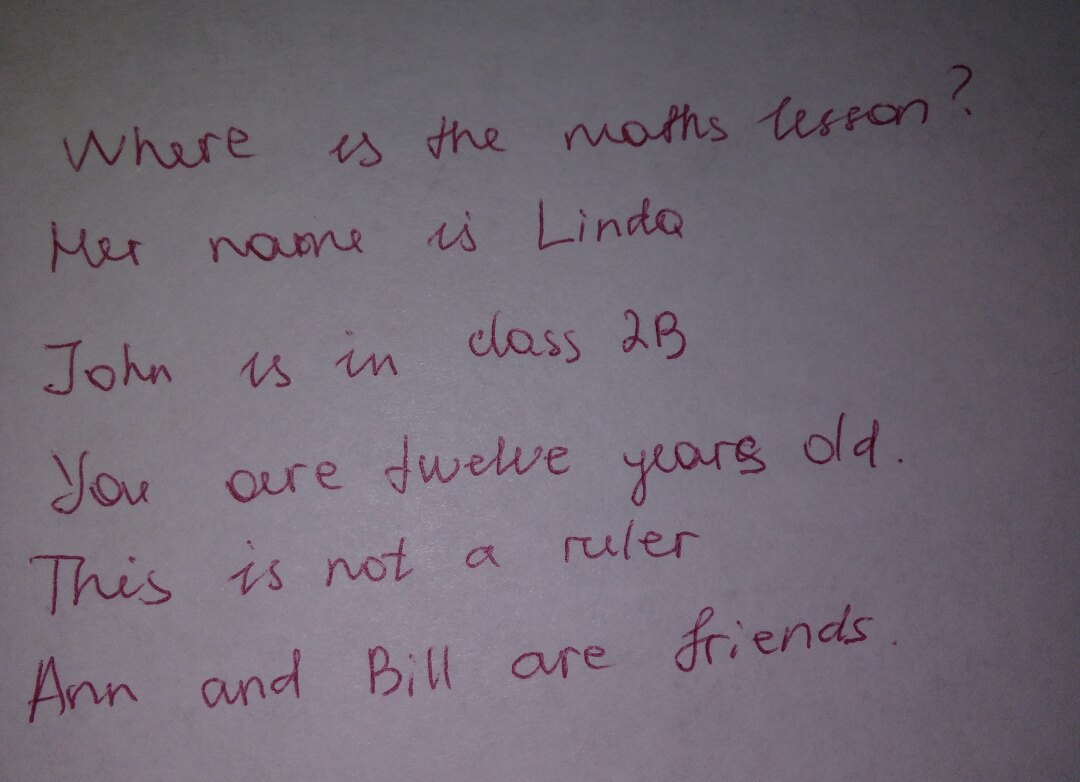 Where is the maths lesson?
Her name is Linda
John is in class 2B
You are twelve years old.
This is not a ruler
Ann and Bill are friends.